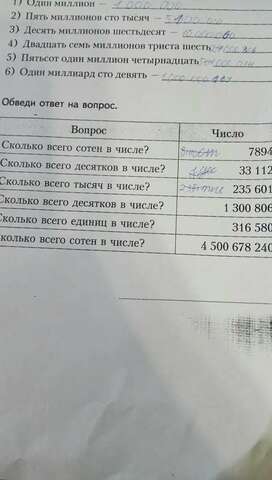 1) Один миллион – 1 000 000
2) Пять миллионов сто тысяч –
3) Десять миллионов шестьдесят –
4) Двадцать семь миллионов триста шесть
5) Пятьсот один миллион четырнадцать
6) Один миллиард сто девять –
Обведи ответ на вопрос.
Вопрос Число
Сколько всего сотен в числе? 7894
Сколько всего десятков в числе? 33 112
Сколько всего тысяч в числе? 235 601
Сколько всего десятков в числе? 1 300 806
Сколько всего единиц в числе? 316 580
колько всего сотен в числе? 4 500 678 240